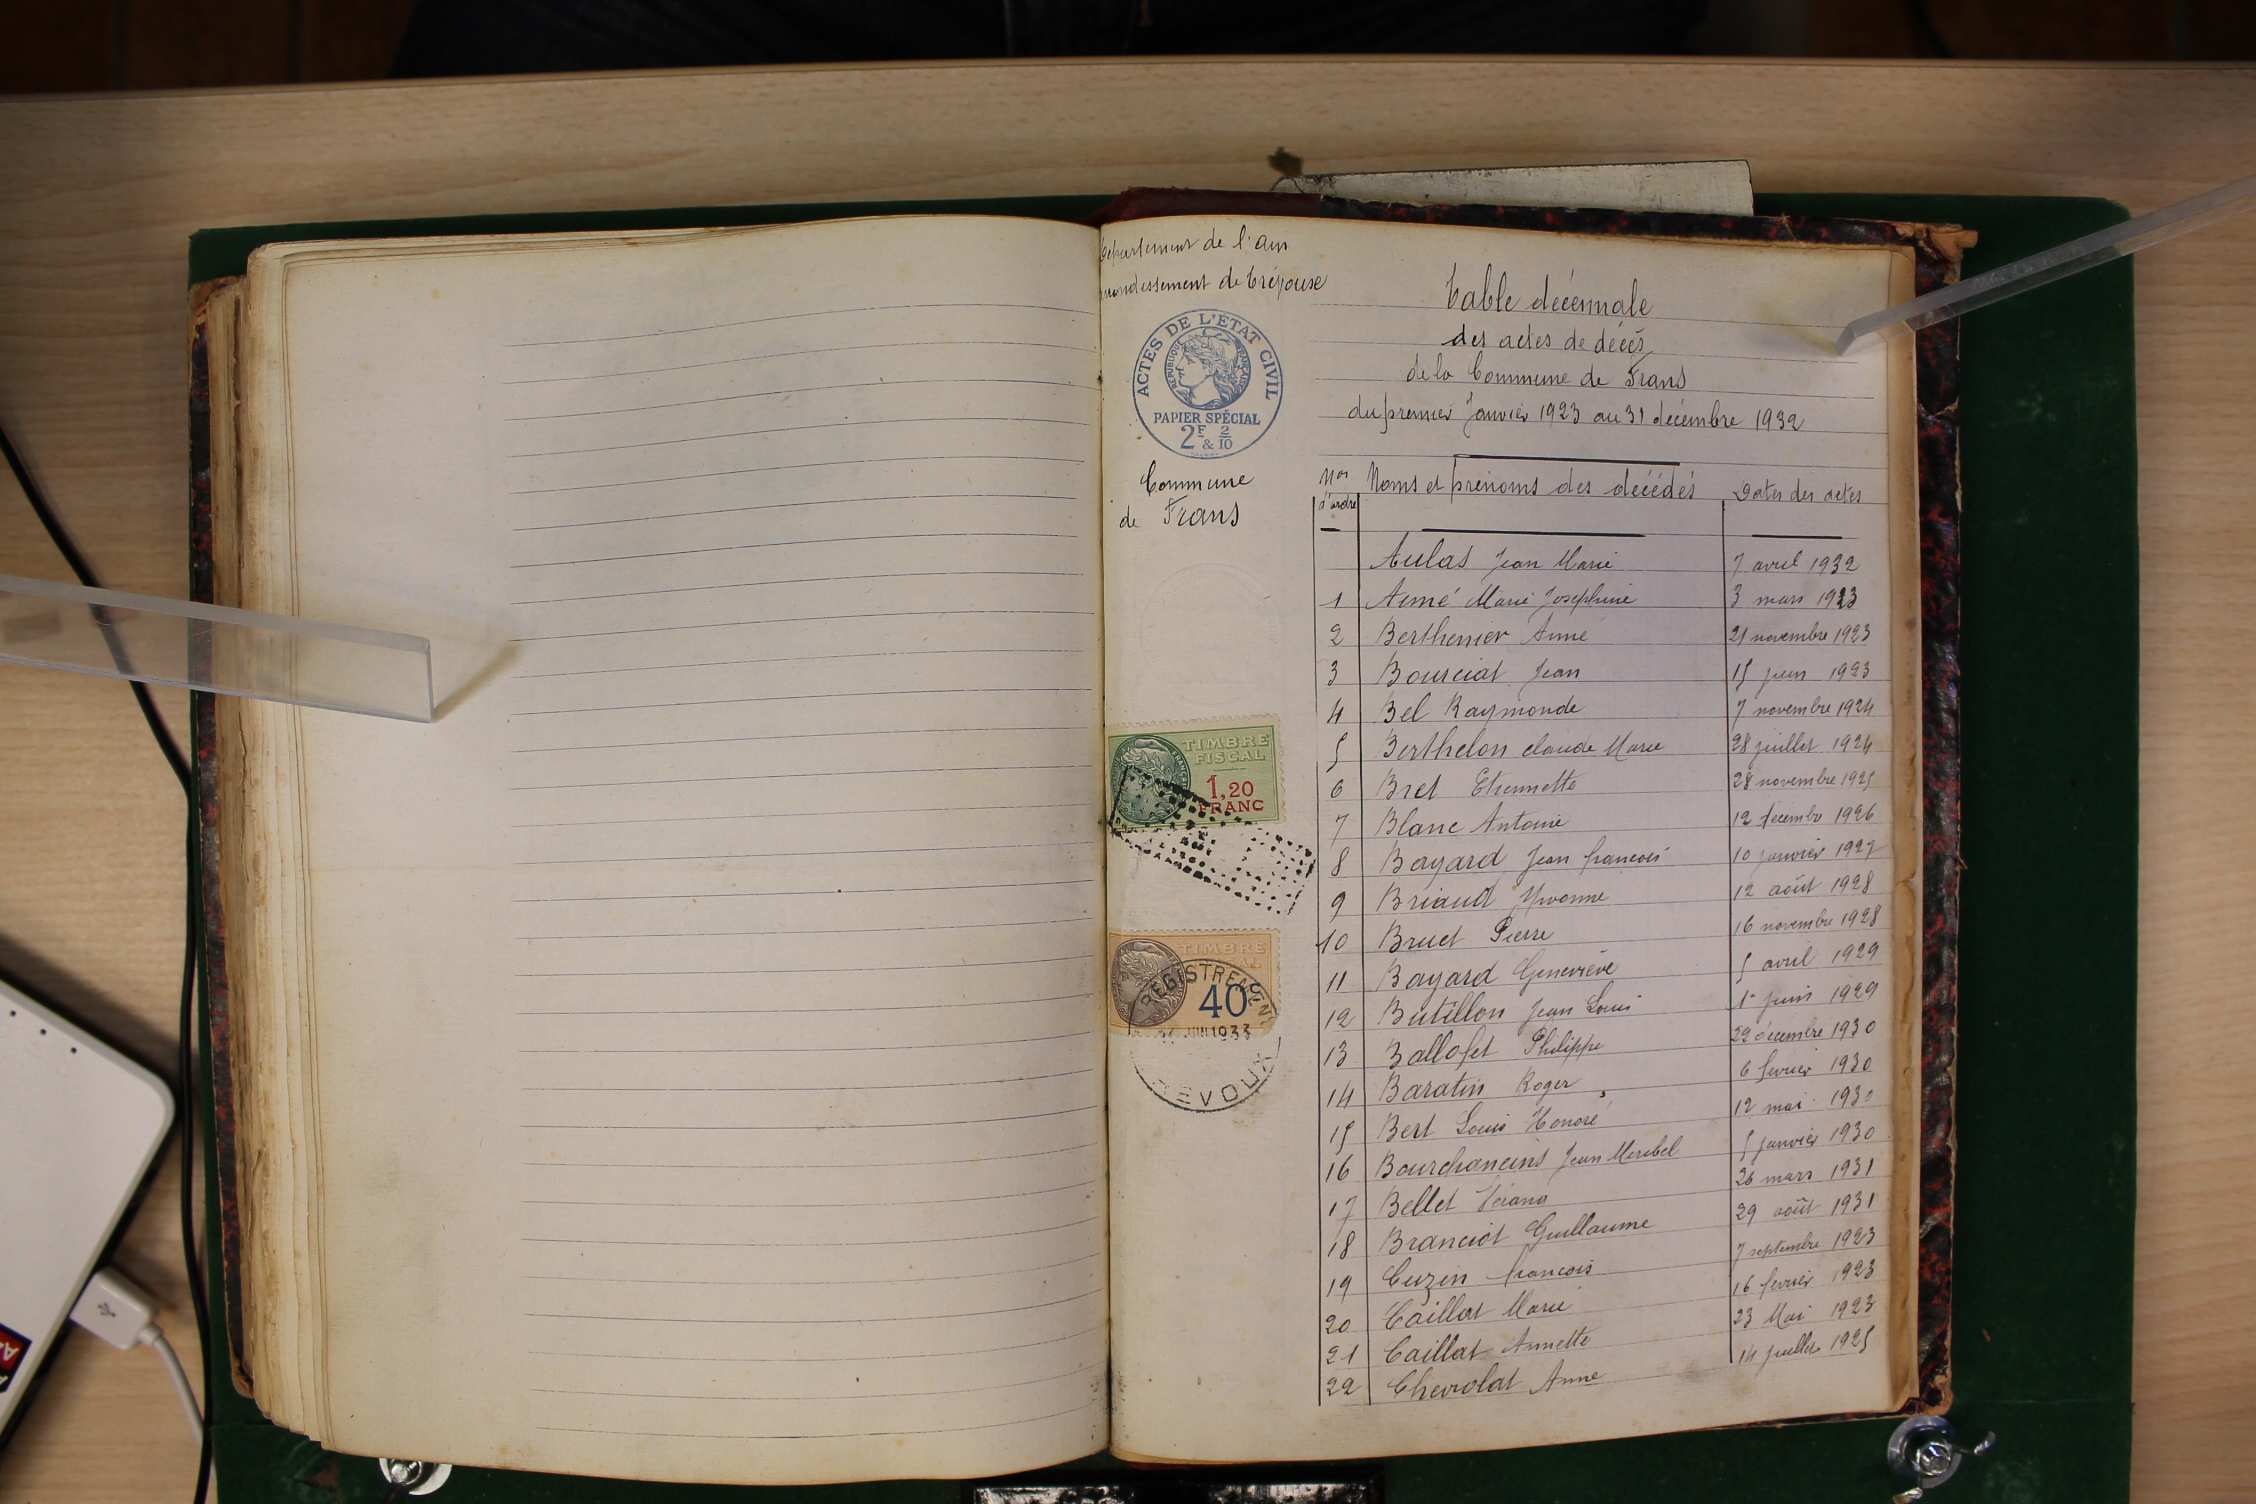 Département de l'Ain
arrondissement de Trévouse
ACTES DE L'ÉTAT CIVIL
RÉPUBLIQUE FRANÇAISE
PAPIER SPÉCIAL
2F & 2/10
Commune
de Frans
TIMBRE
FISCAL
1,20
FRANC
TIMBRE
40
1933
Table décennale
des actes de décès
de la Commune de Frans
du premier Janvier 1923 au 31 décembre 1932
Nos d'ordre Noms et prénoms des décédés Dates des actes
Aulas Jean Marie 7 avril 1932
1 Aimé Marie Joséphine 3 mars 1923
2 Berthenier Anne 21 novembre 1923
3 Bourciat Jean 15 juin 1923
4 Bel Raymonde 7 novembre 1924
5 Berthelon claude Marie 28 juillet 1924
6 Bret Etiennette 28 novembre 1925
7 Blanc Antoine 12 décembre 1926
8 Bayard Jean françois 10 janvier 1927
9 Briaud Yvonne 12 août 1928
10 Bruet Pierre 16 novembre 1928
11 Bayard Geneviève 5 avril 1929
12 Butillon Jean Louis 1er juin 1929
13 Ballofet Philippe 29 décembre 1930
14 Baratin Roger 6 février 1930
15 Bert Louis Honoré 12 mai 1930
16 Bourchanins Jean Meribel 5 janvier 1930
17 Bellet 26 mars 1931
18 Branciot Guillaume 29 août 1931
19 Cuzin françois 7 septembre 1923
20 Caillat Marie 16 février 1923
21 Caillat Annette 23 Mai 1923
22 Chevrolat Anne 14 juillet 1925